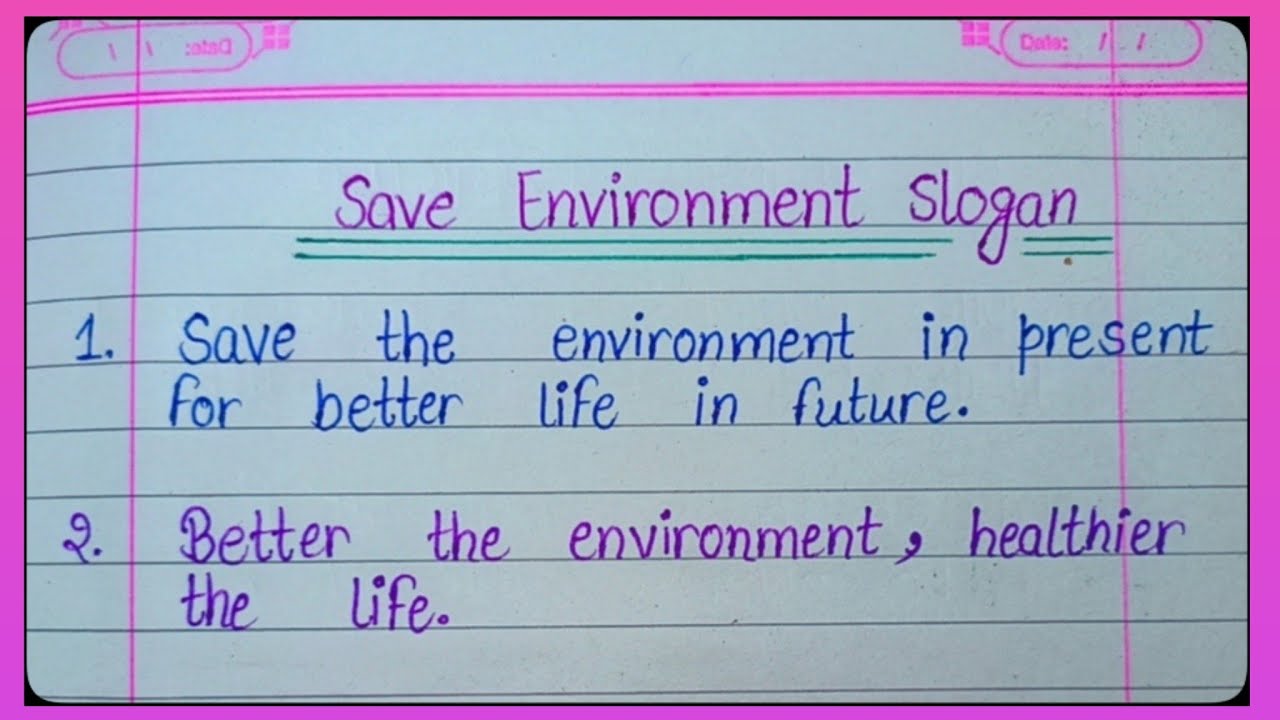 Date: / /
Date: / /
Save Environment Slogan
1. Save the environment in present
for better life in future.
2. Better the environment, healthier
the life.